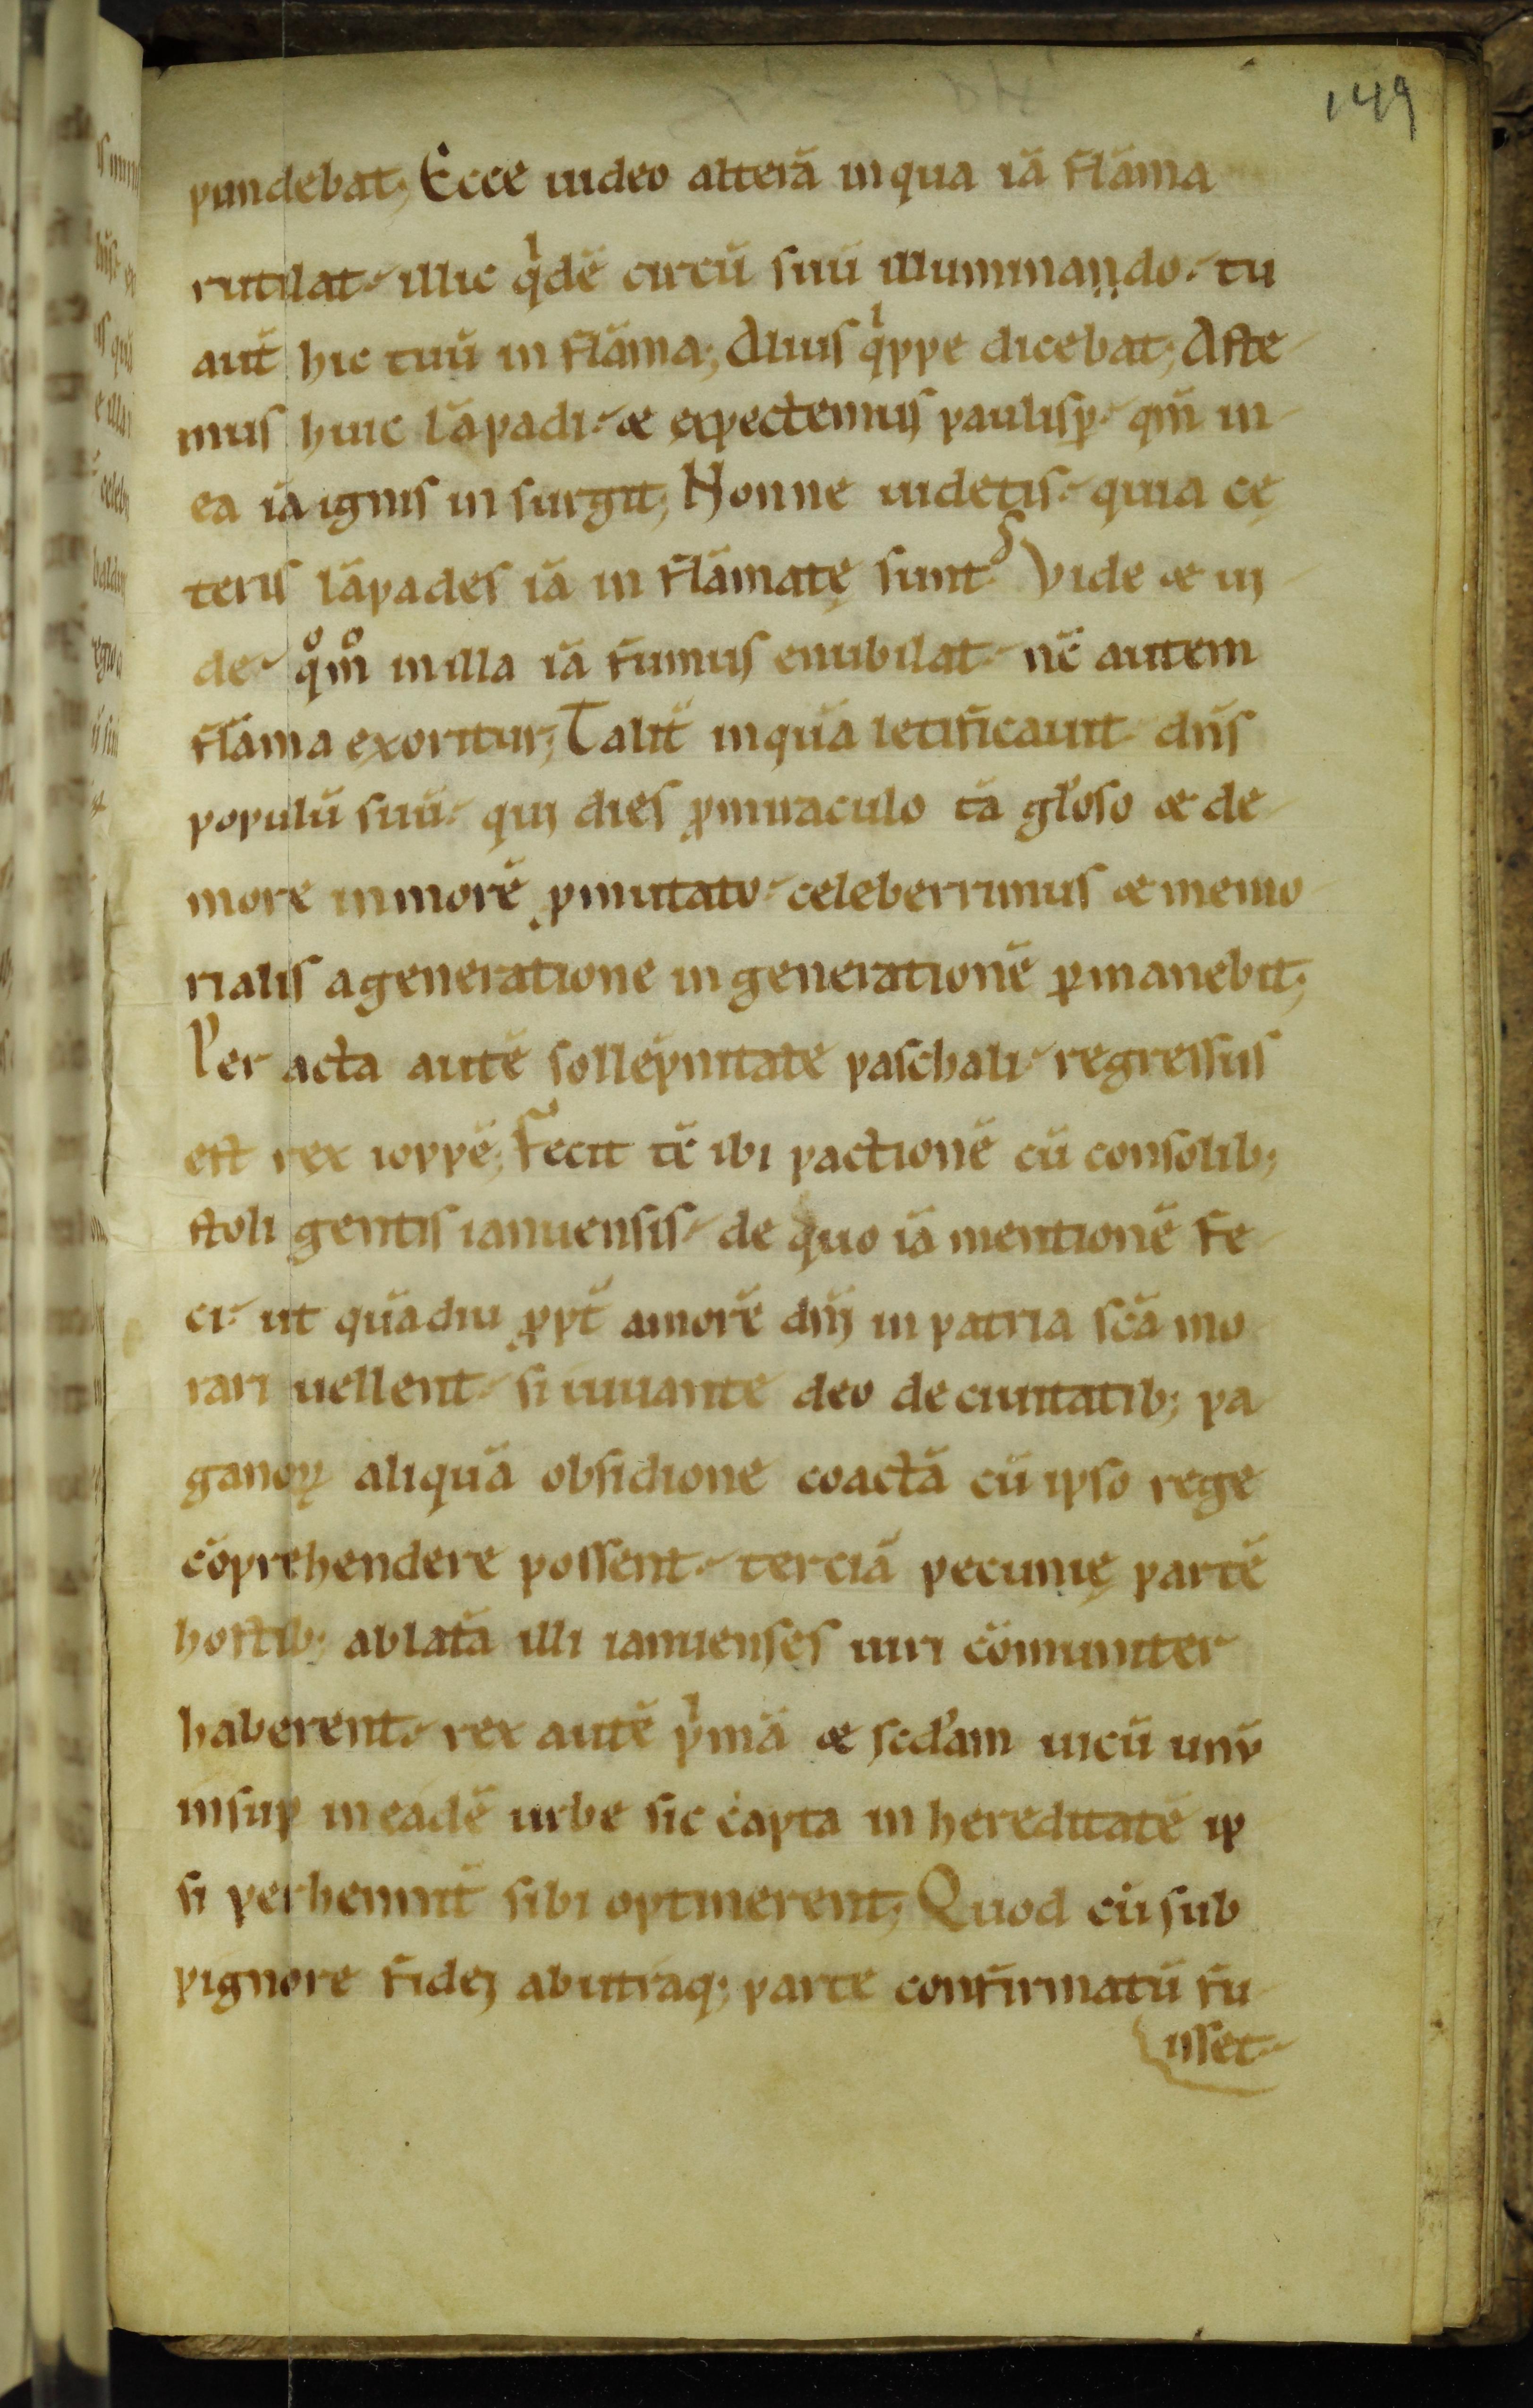 149
pundebat; Ecce uideo alterā inqua iā flāma
rutilat· illic qͥdē circū suū illuminando· tu
aut̄ hic tuū inflāma; Alius qͥppe dicebat; Aste
mus huic lāpadi· & expectemus paulisꝑ· qm̄ in
ea iā ignis insurgit; Nonne uidetis· quia cę
teris lāpades iā inflāmatę sunt? Vide & ui
de· qͦmͦ inilla iā fumus enubilat· nc̄ autem
flāma exoritur; Talit̄ inquā letificauit dn̄s
populū suū· qui dies ꝓmiraculo tā gl̓oso & de
more inmorē ꝑmutato· celeberrimus & memo
rialis ageneratione ingenerationē ꝑmanebit;
Per acta autē sollēpnitate paschali· regressus
est rex ioppē; Fecit tc̄ ibi pactionē cū consolib;
stoli gentis ianuensis· de quo iā mentionē fe
ci· ut quādiu ꝓpt̄ amorē dn̄i inpatria sc̄a mo
rari uellent· si iuuante deo deciuitatib; pa
ganoꝝ aliquā obsidione coactā cū ipso rege
cōprehendere possent· terciā pecunię partē
hostib; ablatā illi ianuenses uiri cōmuniter
haberent· rex autē pͥmā & scd̓am uicū unū
insuꝑ ineadē urbe sic capta inhereditatē ip
si perhennit̄ sibi optinerent; Quod cū sub
pignore fidei abutraq; parte confirmatū fu
isset·